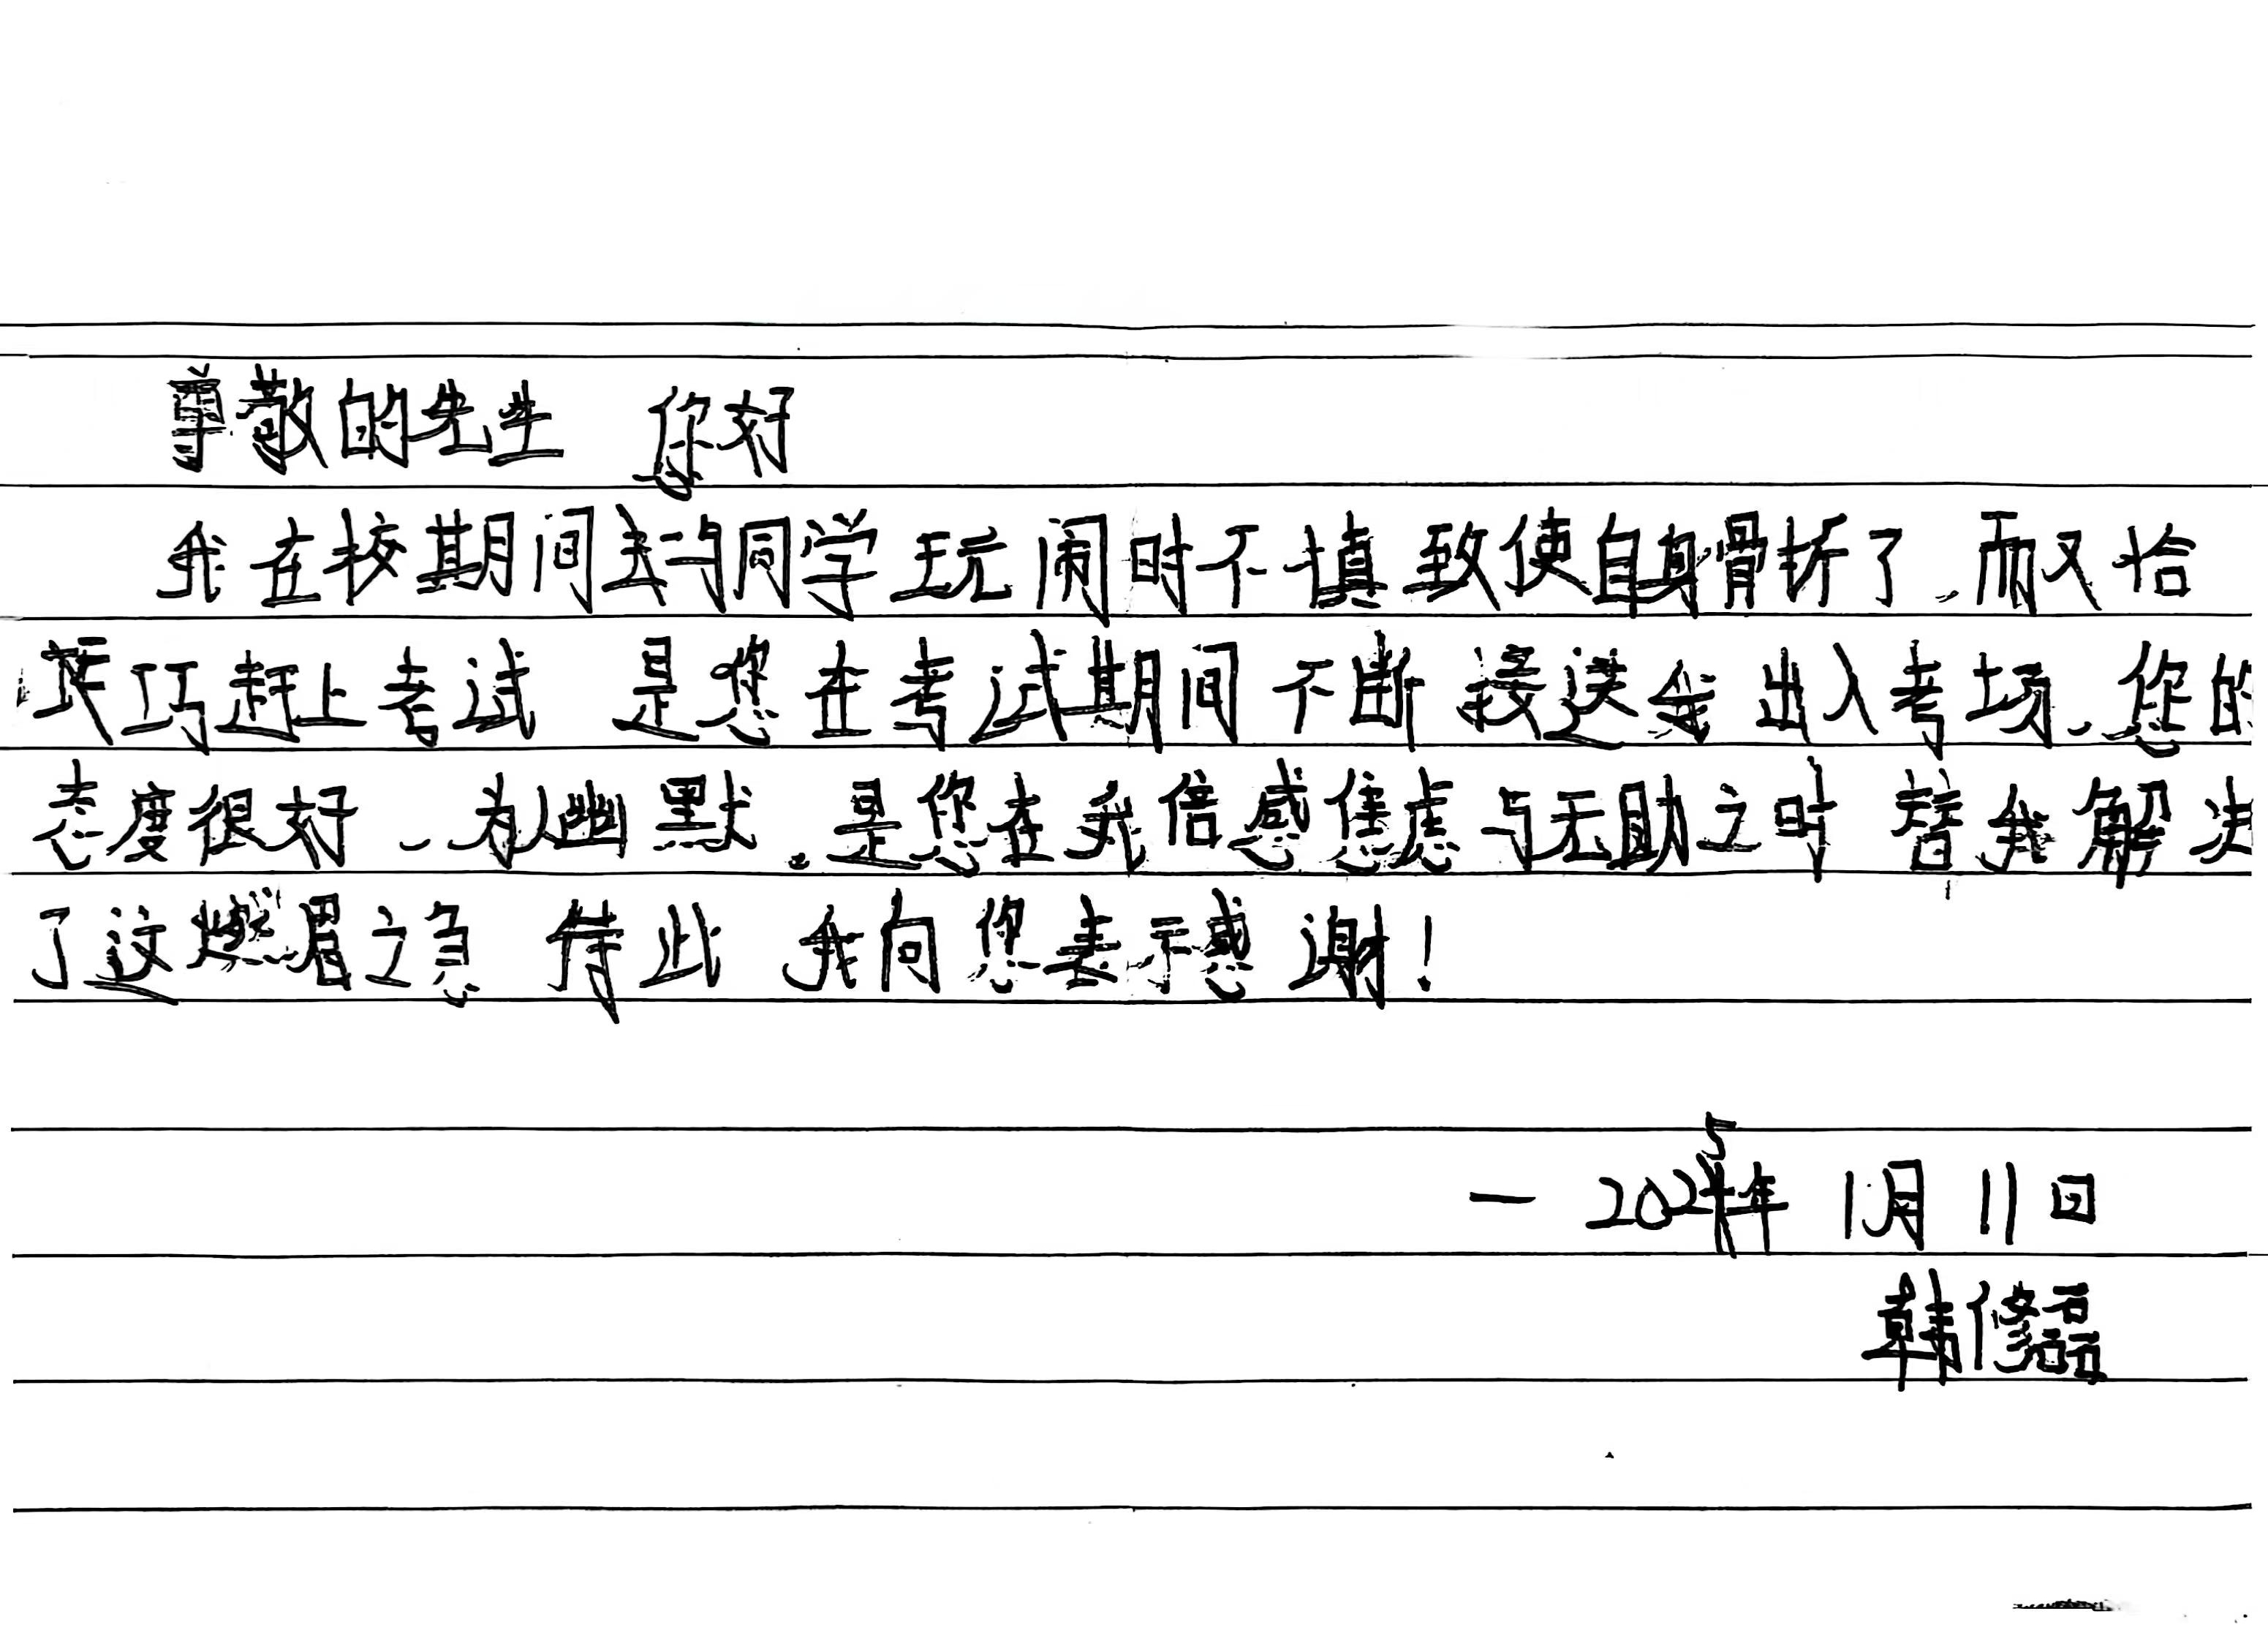 尊敬的先生 您好
我在校期间与同学玩闹时不慎致使自身骨折了,而又恰
巧赶上考试 是您在考试期间不断接送我出入考场、您的
态度很好、为人幽默。是您在我倍感焦虑与无助之时 替我解决
了这燃眉之急 特此 我向您表示感谢!
—2025年 1月11日
韩修磊